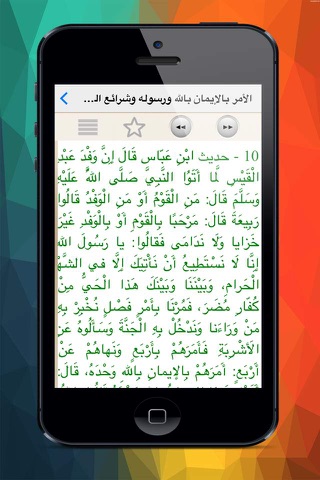 الأمر بالإيمان بالله ورسوله وشرائع الـ...
10 - حديث ابْنِ عَبَّاس قَالَ إِنَّ وَفْدَ عَبْدِ
الْقَيْسِ لَمَّا أَتَوُا النَّبِيَّ صَلَّى اللهُ عَلَيْهِ
وَسَلَّمَ قَالَ: مَنِ الْقَوْمُ أَوْ مَنِ الْوَفْدُ قَالُوا
رَبِيعَةُ قَالَ: مَرْحَبًا بِالْقَوْمِ أَوْ بِالْوَفْدِ غَيْرَ
خَزايا وَلاَ نَدَامَى فَقَالُوا: يا رَسُولَ اللهِ
إِنَّا لا نَسْتَطِيعُ أَنْ نَأْتِيَكَ إِلاَّ في الشَّهْرِ
الْحَرامِ، وَبَيْنَنَا وَبَيْنَكَ هذَا الْحَيُّ مِنْ
كُفَّارِ مُضَرَ، فَمُرْنَا بِأَمْرٍ فَصْلٍ نُخْبِرْ بِهِ
مَنْ وَرَاءَنَا وَنَدْخُلْ بِهِ الْجَنَّةَ وَسَأَلُوهُ عَنِ
الأَشْرِبَةِ فَأَمَرَهُمْ بِأَرْبَعٍ وَنَهاهُمْ عَنْ
أَرْبَعٍ: أَمَرَهُمْ بِالإِيمانِ بِاللهِ وَحْدَهُ، قَالَ: